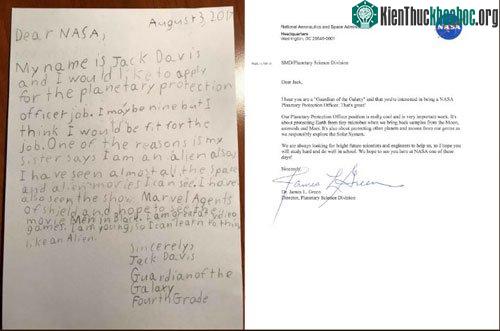 August 3, 2017
Dear NASA,
My name is Jack Davis
and I would like to apply
for the planetary protection
officer job. I may be nine but I
think I would be fit for the
job. One of the reasons is my
sister says I am an alien also
I have seen almost all the space
and alien movies I can see. I have
also seen the show Marvel Agents
of Shield and hope to see the
movie Men in Black. I am great at video
games. I am young, so I can learn to think
like an Alien.
Sincerely,
Jack Davis
Guardian of the
Galaxy
Fourth Grade
KienThuckhoahoc.org
National Aeronautics and Space Administration
Headquarters
Washington, DC 20546-0001
NASA
SMD/Planetary Science Division
Dear Jack,
I hear you are a "Guardian of the Galaxy" and that you're interested in being a NASA
Planetary Protection Officer. That's great!
Our Planetary Protection Officer position is really cool and is very important work. It's
about protecting Earth from tiny microbes when we bring back samples from the Moon,
asteroids and Mars. It's also about protecting other planets and moons from our germs as
we responsibly explore the Solar System.
We are always looking for bright future scientists and engineers to help us, so I hope you
will study hard and do well in school. We hope to see you here at NASA one of these
days!
Sincerely,
James L Green
Dr. James L. Green
Director, Planetary Science Division